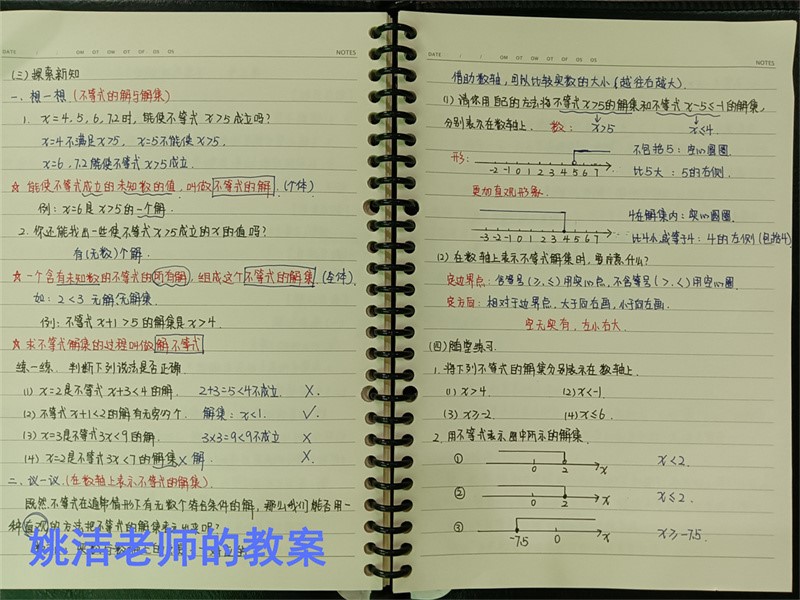 DATE / / OM OT OW OT OF OS OS
NOTES
(三)探索新知
一、想一想(不等式的解与解集)
1. x=4,5,6,7.2时,能使不等式 x>5成立吗?
x=4不满足x>5, x=5不能使x>5.
x=6,7.2能使不等式x>5成立.
☆ 能使不等式成立的未知数的值,叫做不等式的解.(个体)
例:x=6是x>5的一个解.
2. 你还能找出一些使不等式x>5成立的x的值吗?
有(无数)个解.
☆ 一个含有未知数的不等式的所有解,组成这个不等式的解集(全体)
如:2<3 无解无解集
例:不等式x+1>5的解集是x>4.
☆ 求不等式解集的过程叫做解不等式
练一练. 判断下列说法是否正确.
(1) x=2是不等式x+3<4的解. 2+3=5<4不成立. ×.
(2) 不等式x+1<2的解有无穷多个. 解集:x<1. √.
(3) x=3是不等式3x<9的解. 3×3=9<9不成立 ×
(4) x=2是不等式3x<7的解集× 解. ×.
二、议一议.(在数轴上表示不等式的解集).
既然不等式在通常情形下有无数个符合条件的解,那么我们能否用一
种直观的方法把不等式的解集表示出来呢?
姚洁老师的教案
DATE / / OM OT OW OT OF OS OS
NOTES
借助数轴,可以比较实数的大小(越往右越大).
(1) 请你用自己的方法将不等式x>5的解集和不等式x-5≤-1的解集,
分别表示在数轴上. 数: x>5 x≤4.
形: 不包括5:空心圆圈.
-2 -1 0 1 2 3 4 5 6 7 比5大:5的右侧.
更加直观形象.
4在解集内:实心圆圈.
-3 -2 -1 0 1 2 3 4 5 6 7 比4小或等于4:4的左侧(包括4)
(2) 在数轴上表示不等式解集时,要注意什么?
定边界点:含等号(≥,≤)用实心点,不含等号(>,<)用空心圈.
定方向:相对于边界点,大于向右画,小于向左画.
空无实有,左小右大.
(四)随堂练习.
1. 将下列不等式的解集分别表示在数轴上.
(1) x>4. (2) x<-1.
(3) x≥-2. (4) x≤6.
2. 用不等式表示图中所示的解集.
① 0 2 x x<2.
② 0 2 x x≤2.
③ -7.5 0 x x≥-7.5